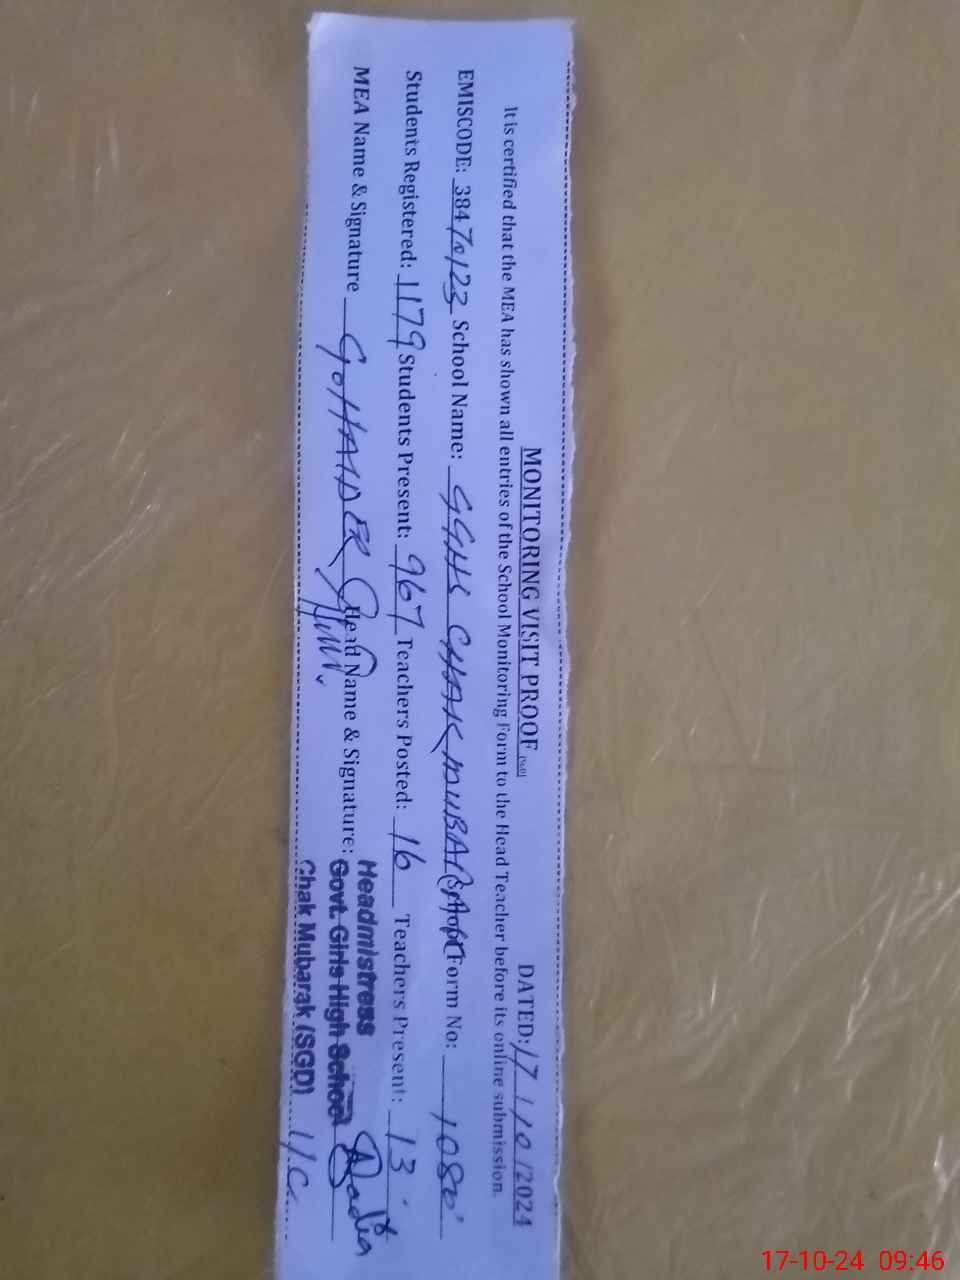 MONITORING VISIT PROOF DATED: 17/10/2024
It is certified that the MEA has shown all entries of the School Monitoring Form to the Head Teacher before its online submission.
EMISCODE: 38470123 School Name: GGHS CHAK MUBARAK Form No: 1080
Students Registered: 1179 Students Present: 967 Teachers Posted: 16 Teachers Present: 13
MEA Name & Signature G. HAIDER Head Name & Signature:
Headmistress
Govt. Girls High School
Chak Mubarak (SGD) I/C
17-10-24 09:46